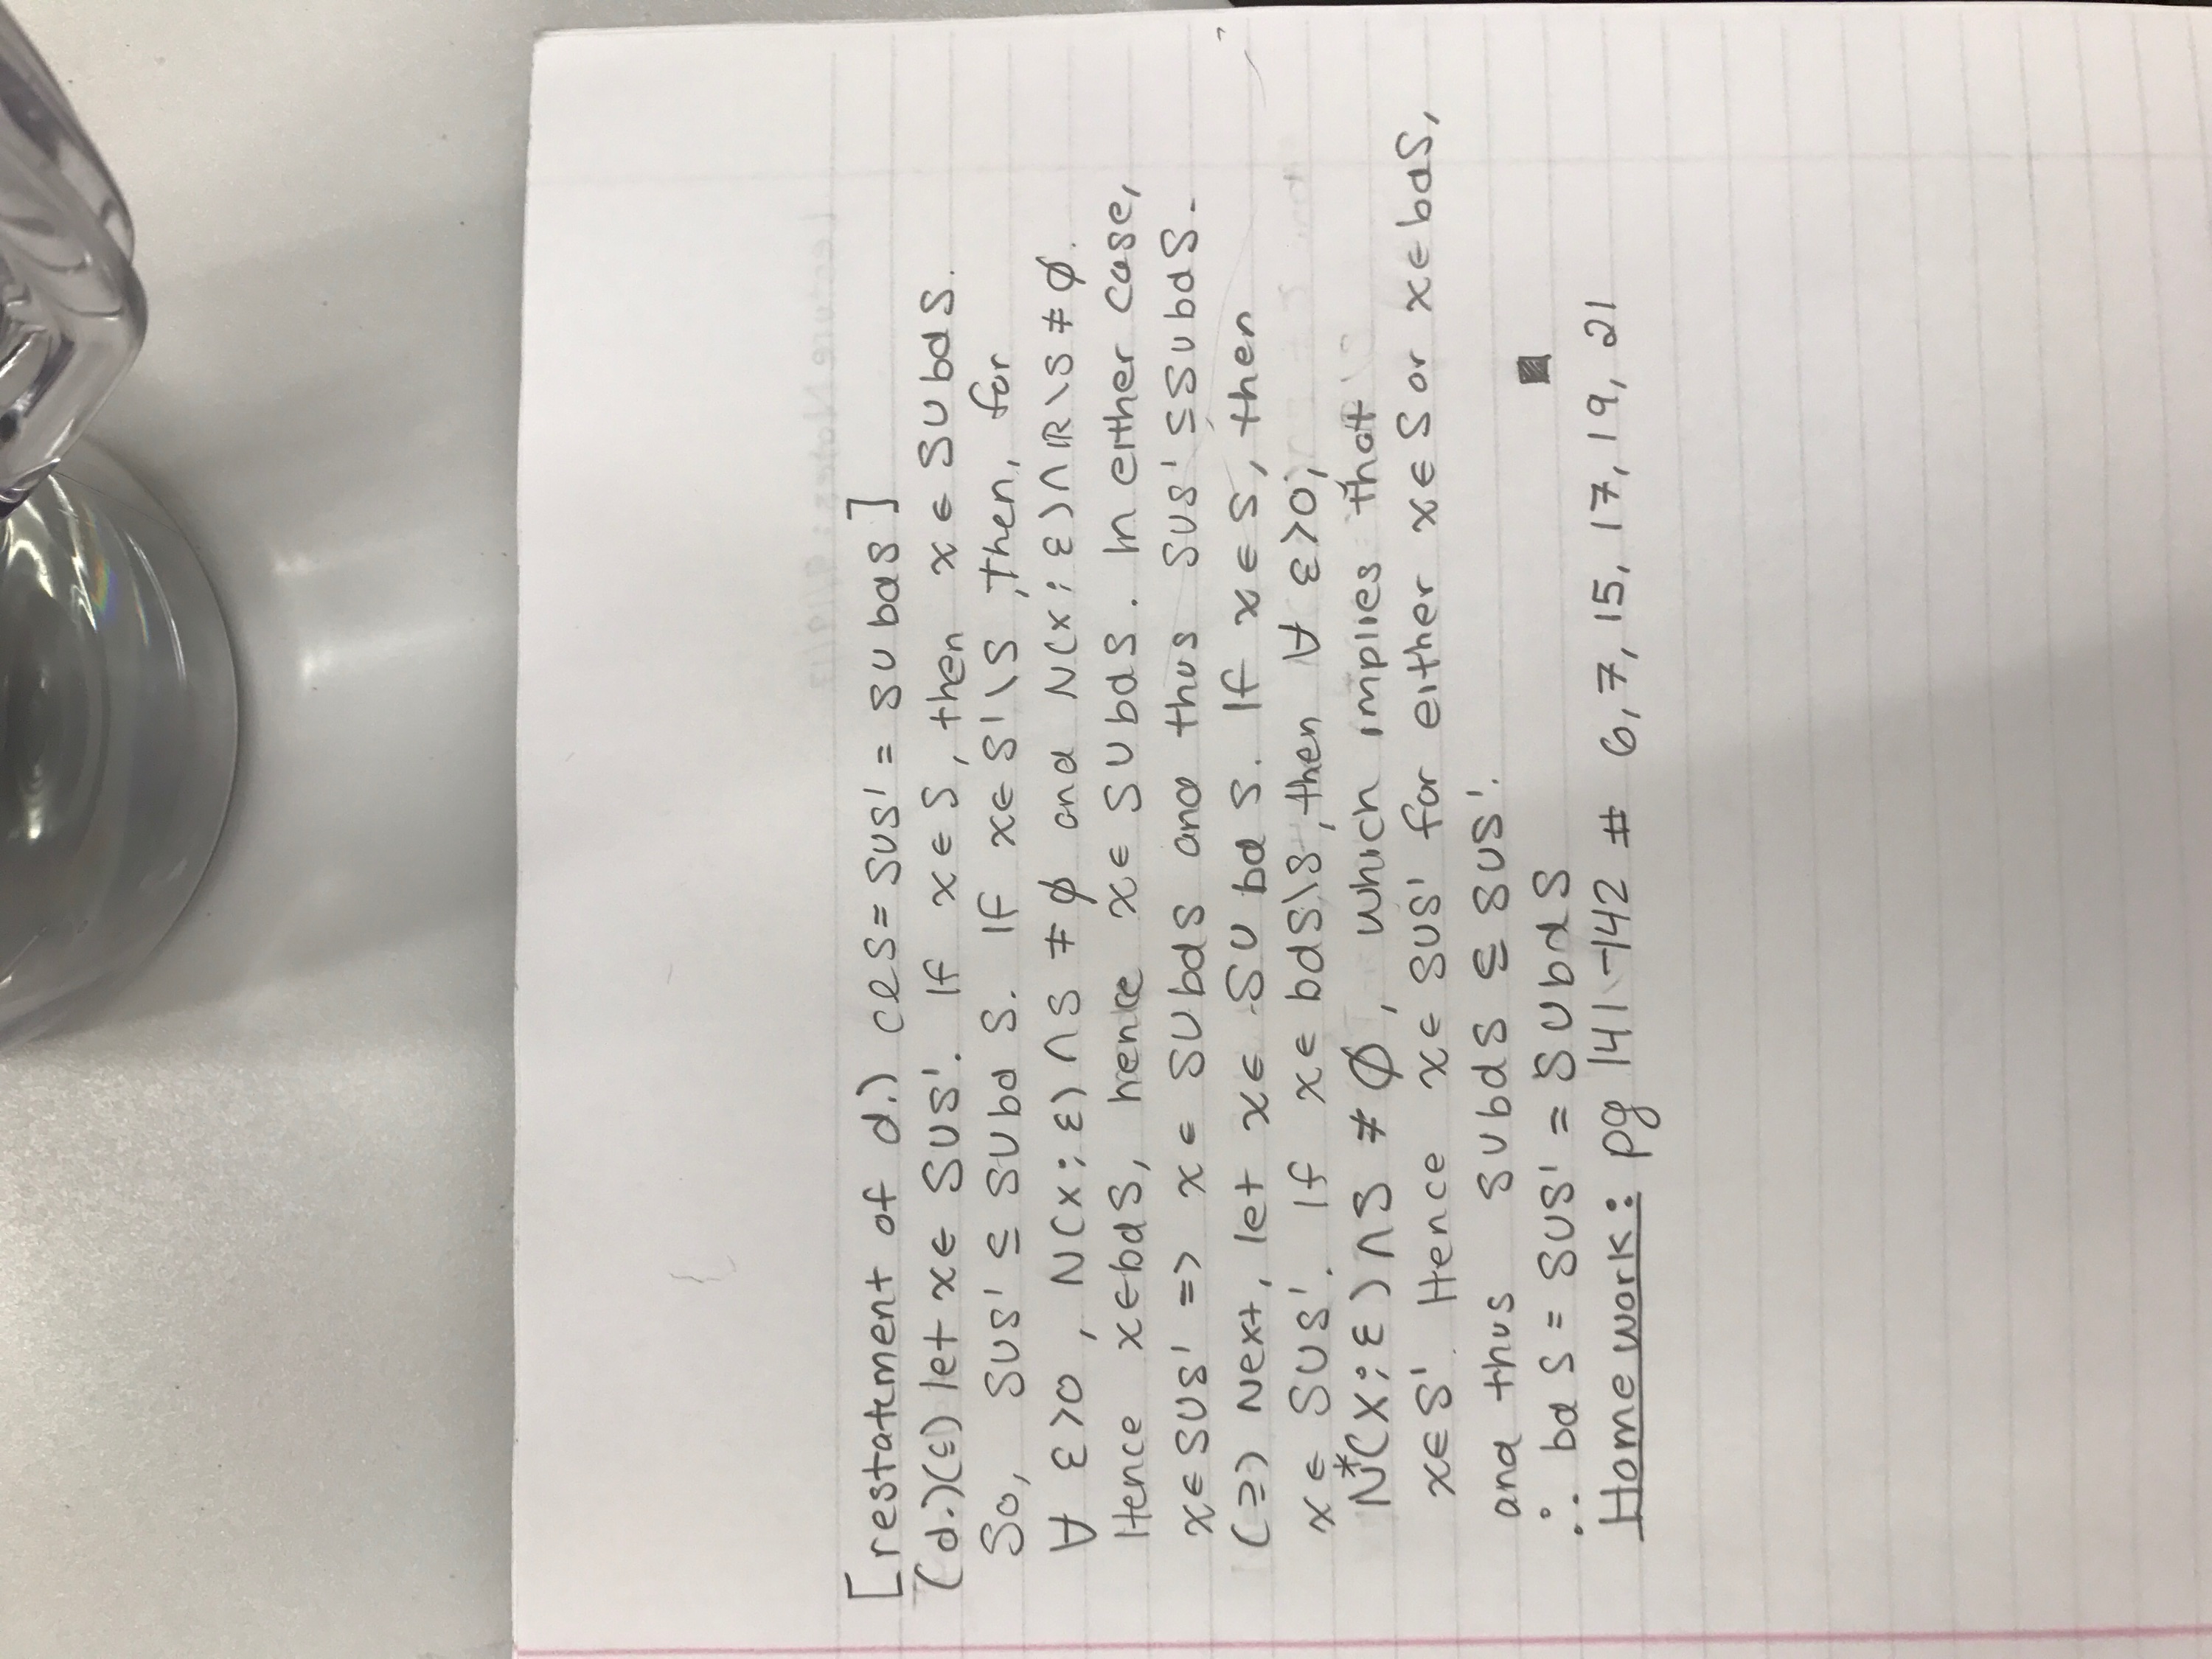 [restatement of d.) clS = S∪S' = S∪bdS]
(d.)(⊆) let x∈ S∪S'. If x∈S, then x∈S∪bdS.
So, S∪S' ⊆ S∪bd S. If x∈S'\S, then, for
∀ ε>0, N(x;ε)∩S ≠ ∅ and N(x;ε)∩ℝ\S ≠ ∅.
Hence x∈bdS, hence x∈S∪bdS. In either case,
x∈S∪S' => x∈S∪bdS and thus S∪S'⊆S∪bdS.
(⊇) Next, let x∈ S∪bd S. If x∈S, then
x∈ S∪S'. If x∈bdS\S, then ∀ ε>0;
N*(x;ε)∩S ≠ ∅, which implies that
x∈S'. Hence x∈ S∪S' for either x∈S or x∈bdS,
and thus S∪bdS ⊆ S∪S'.
∴ bd S = S∪S' = S∪bdS ■
Homework: pg 141-142 # 6,7,15,17,19,21